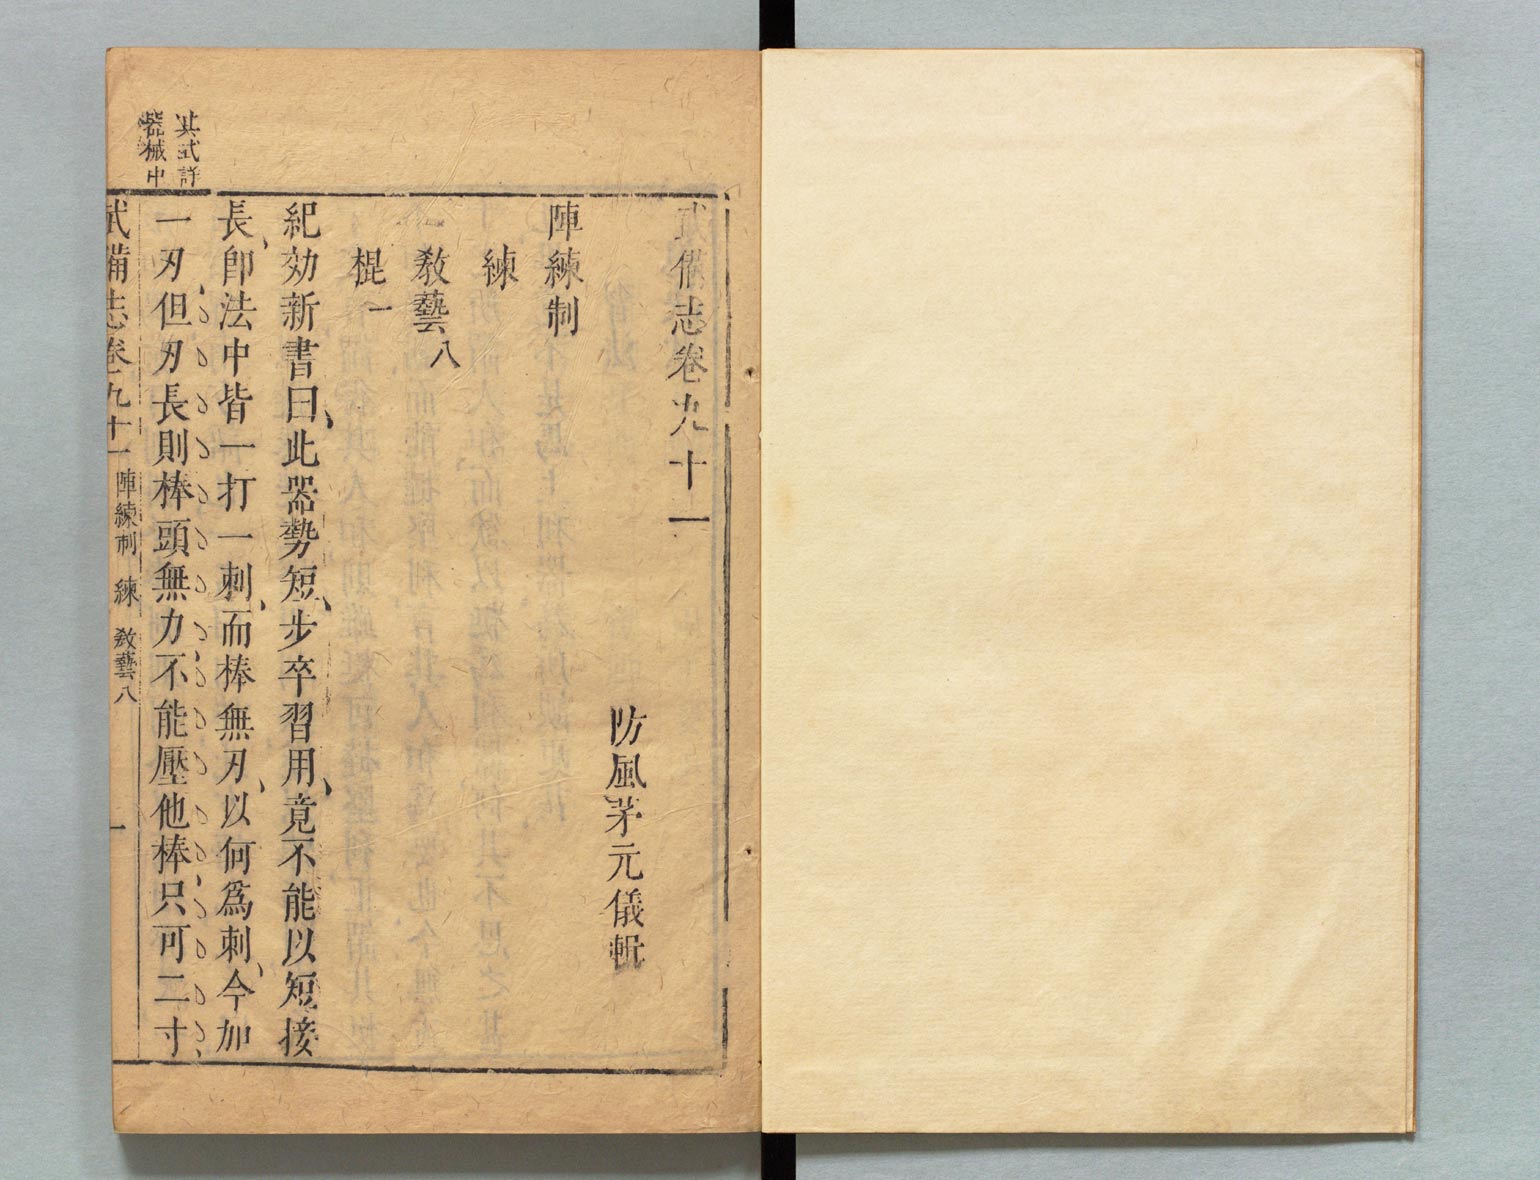 武備志卷九十一
防風茅元儀輯
陣練制
練
敎藝八
棍一
紀効新書曰此器勢短步卒習用竟不能以短接
長卽法中皆一打一刺而棒無刃以何爲刺今加
一刃但刃長則棒頭無力不能壓他棒只可二寸
其式詳
器械中
武備志卷九十一 陣練制 練 敎藝八 一